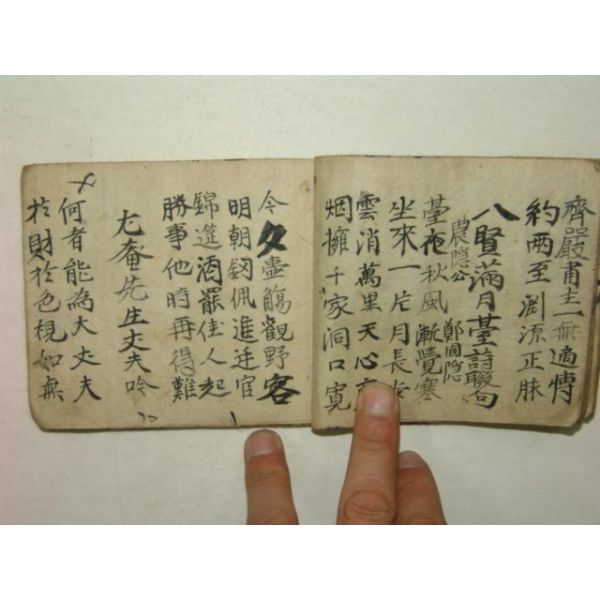 齊嚴肅主一無適傳
約兩至淵源正脉
八賢滿月臺詩聯句
農隐公 鄭圃隐
臺夜秋風漸覺寒
坐來一片月長
雲消萬里天心
烟擁千家洞口寬
今夕壺觴觀野客
明朝釼佩進廷官
錦筵酒罷佳人起
勝事他時再得難
尤菴先生丈夫吟
何者能為大丈夫
於財於色視如無